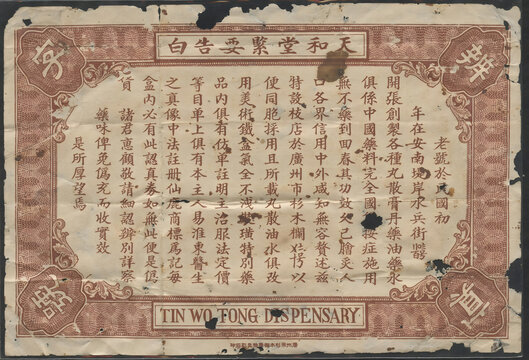 天和堂緊要告白
辨
真
老號於民國初
年在安南堤岸水兵街號
開張創製各種丸散膏丹藥油藥水
俱係中國藥料完全國按症施用
無不藥到回春其功效久已膾炙人
口各界信用中外咸知無容贅述茲
特設枝店於廣州市杉木欄以
便同胞採用且所裁丸散油水俱改
用美術鐵盒氣全不洩璜特別藥
品內俱有仿單註明主治服法定價
等目單上俱有本主人易淮東醫生
之真像中法註冊仙鹿商標為記每
盒內必有此認真券如無此便是假
貨 諸君惠顧敬請細認辨別詳察
藥味俾免偽充而收實效
是所厚望焉
字
號
TIN WO TONG DISPENSARY